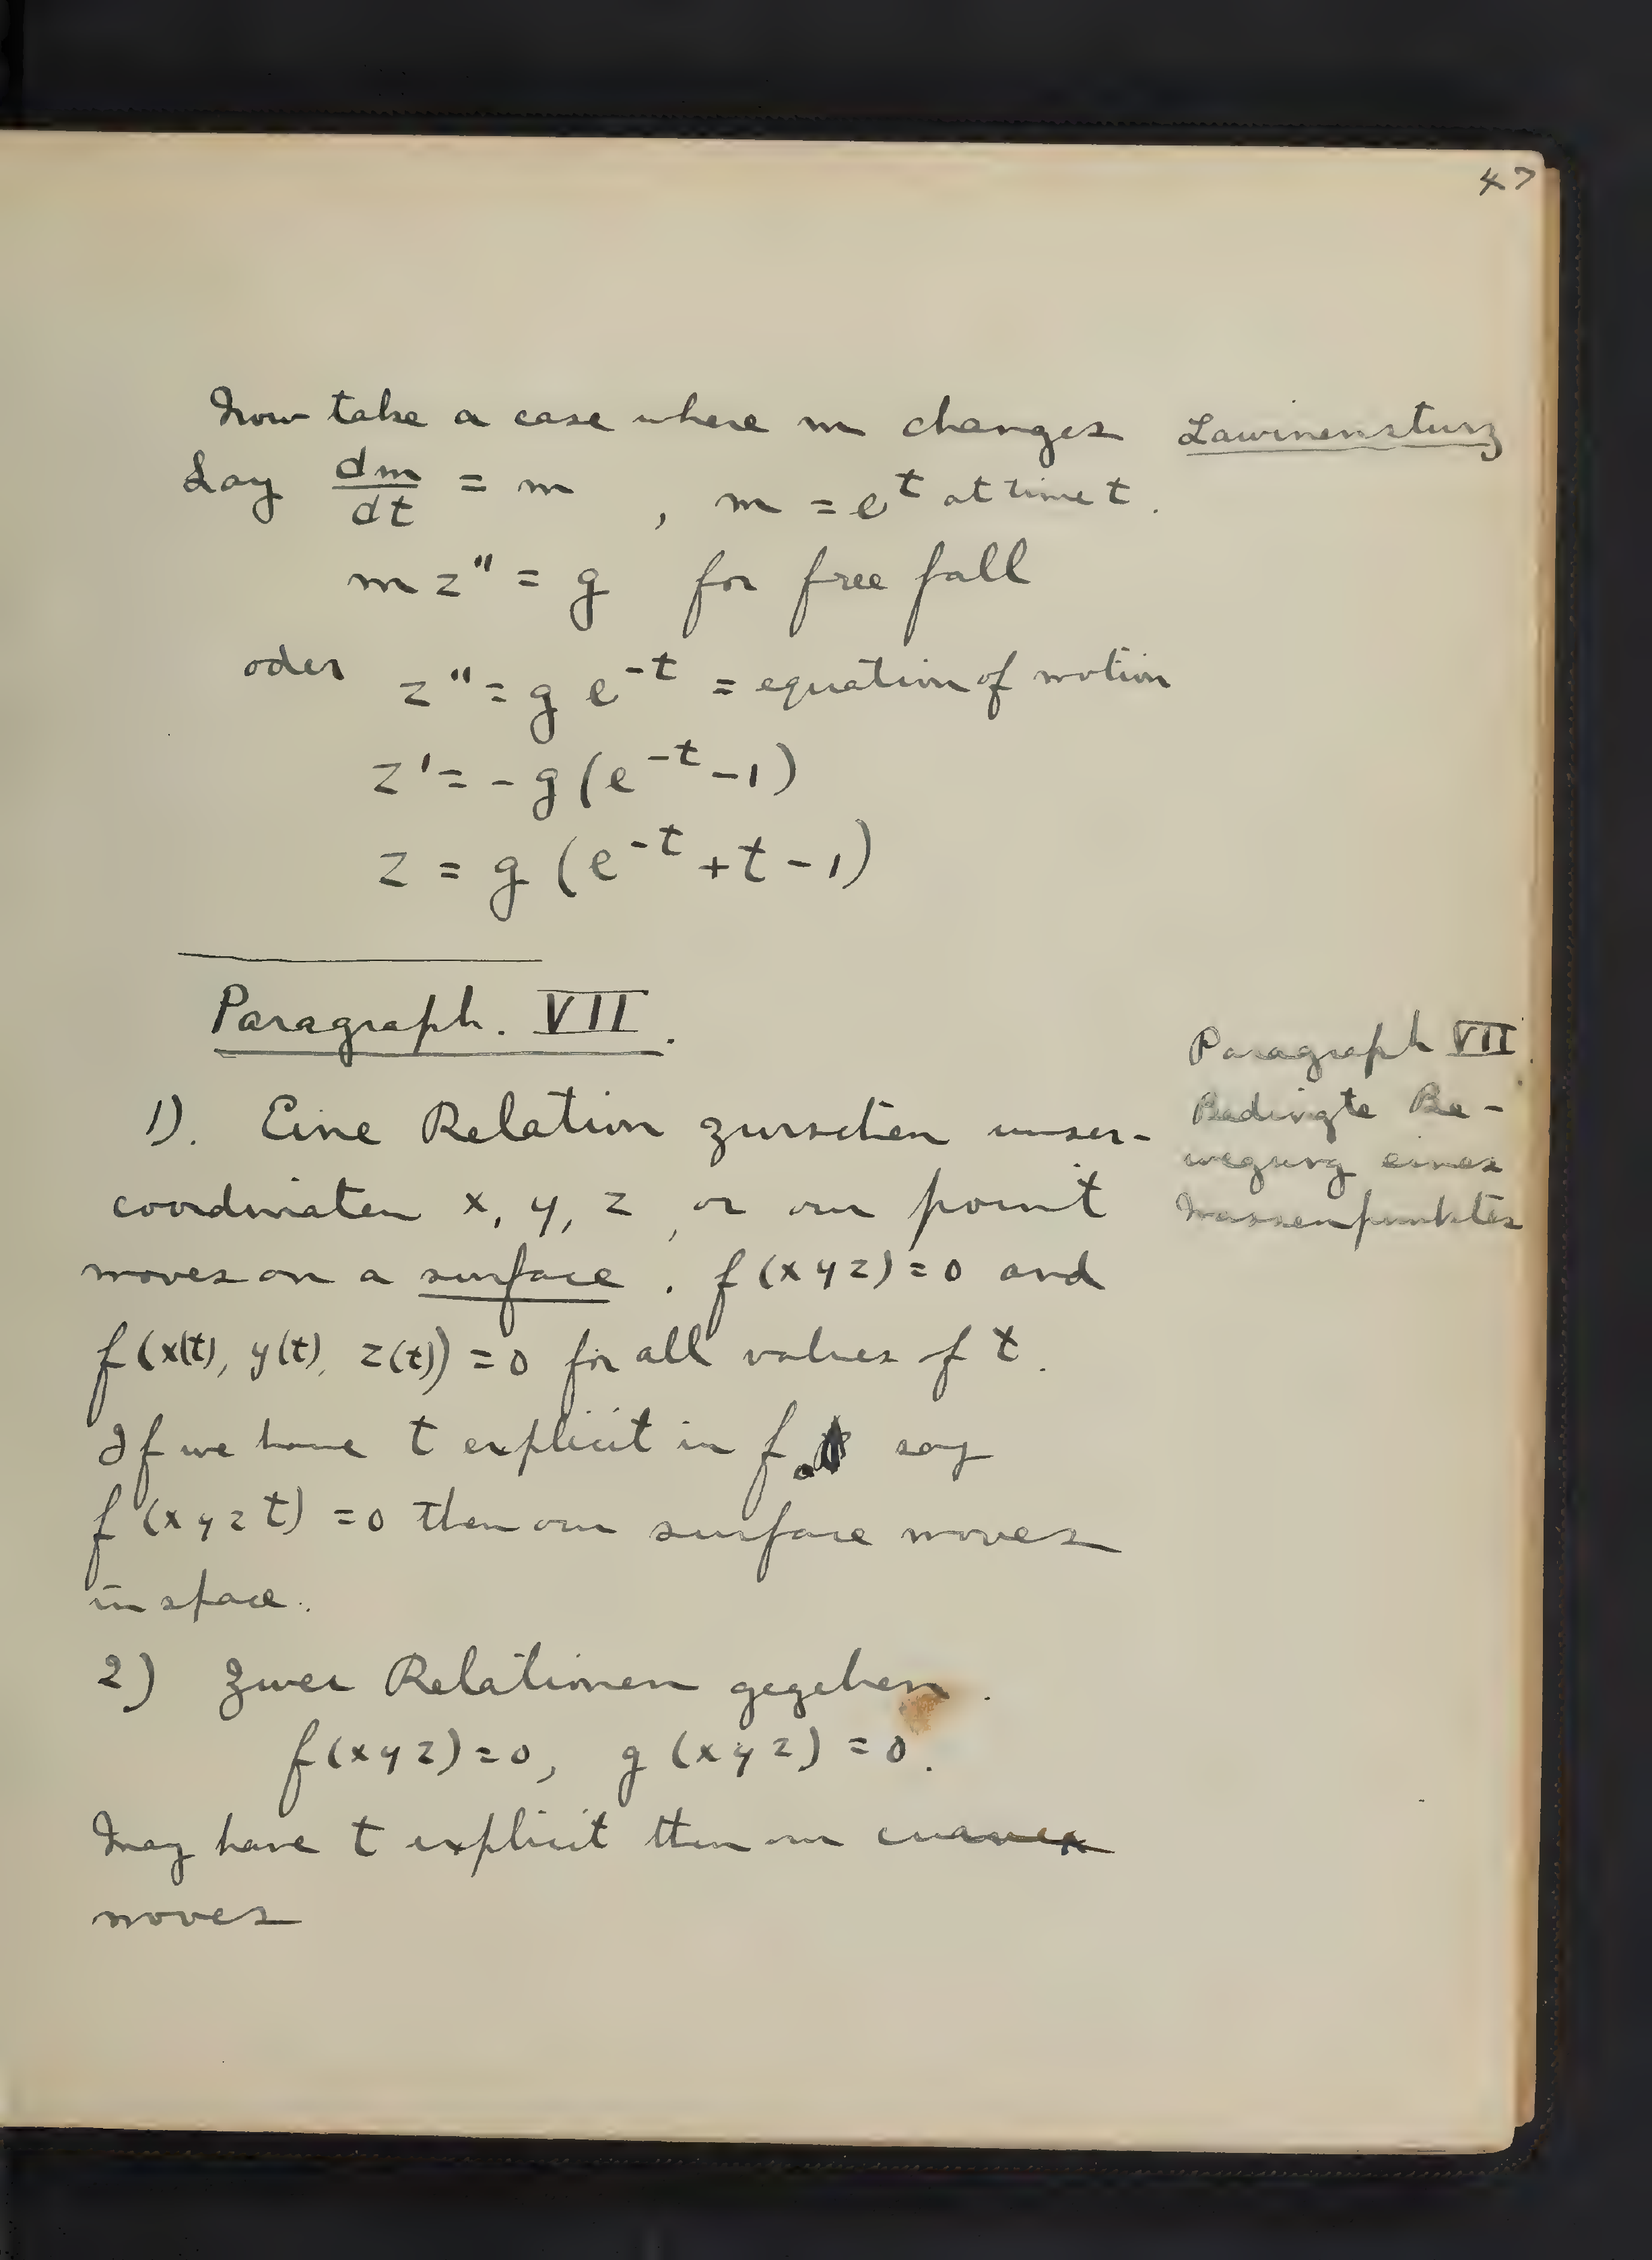 47
Now take a case where m changes
Lawinensturz
Say dm/dt = m , m = e^t at time t.
m z" = g for free fall
oder z" = g e^-t = equation of motion
z' = - g (e^-t - 1)
z = g (e^-t + t - 1)
Paragraph. VII.
Paragraph VII.
Bedingte Be-
wegung eines
Massenpunktes
1). Eine Relation zwischen unser-
coordinaten x, y, z, or our point
moves on a surface. f(xyz) = 0 and
f(x(t), y(t), z(t)) = 0 for all values of t.
If we have t explicit in f say
f(xyzt) = 0 then our surface moves
in space.
2) Zwei Relationen gegeben.
f(xyz) = 0, g(xyz) = 0.
May have t explicit then our curve
moves